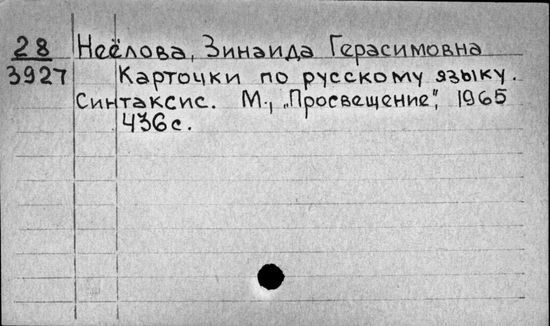 28 Неёлова, Зинаида Герасимовна
3927 Карточки по русскому языку.
Синтаксис. М., „Просвещение", 1965
436 с.